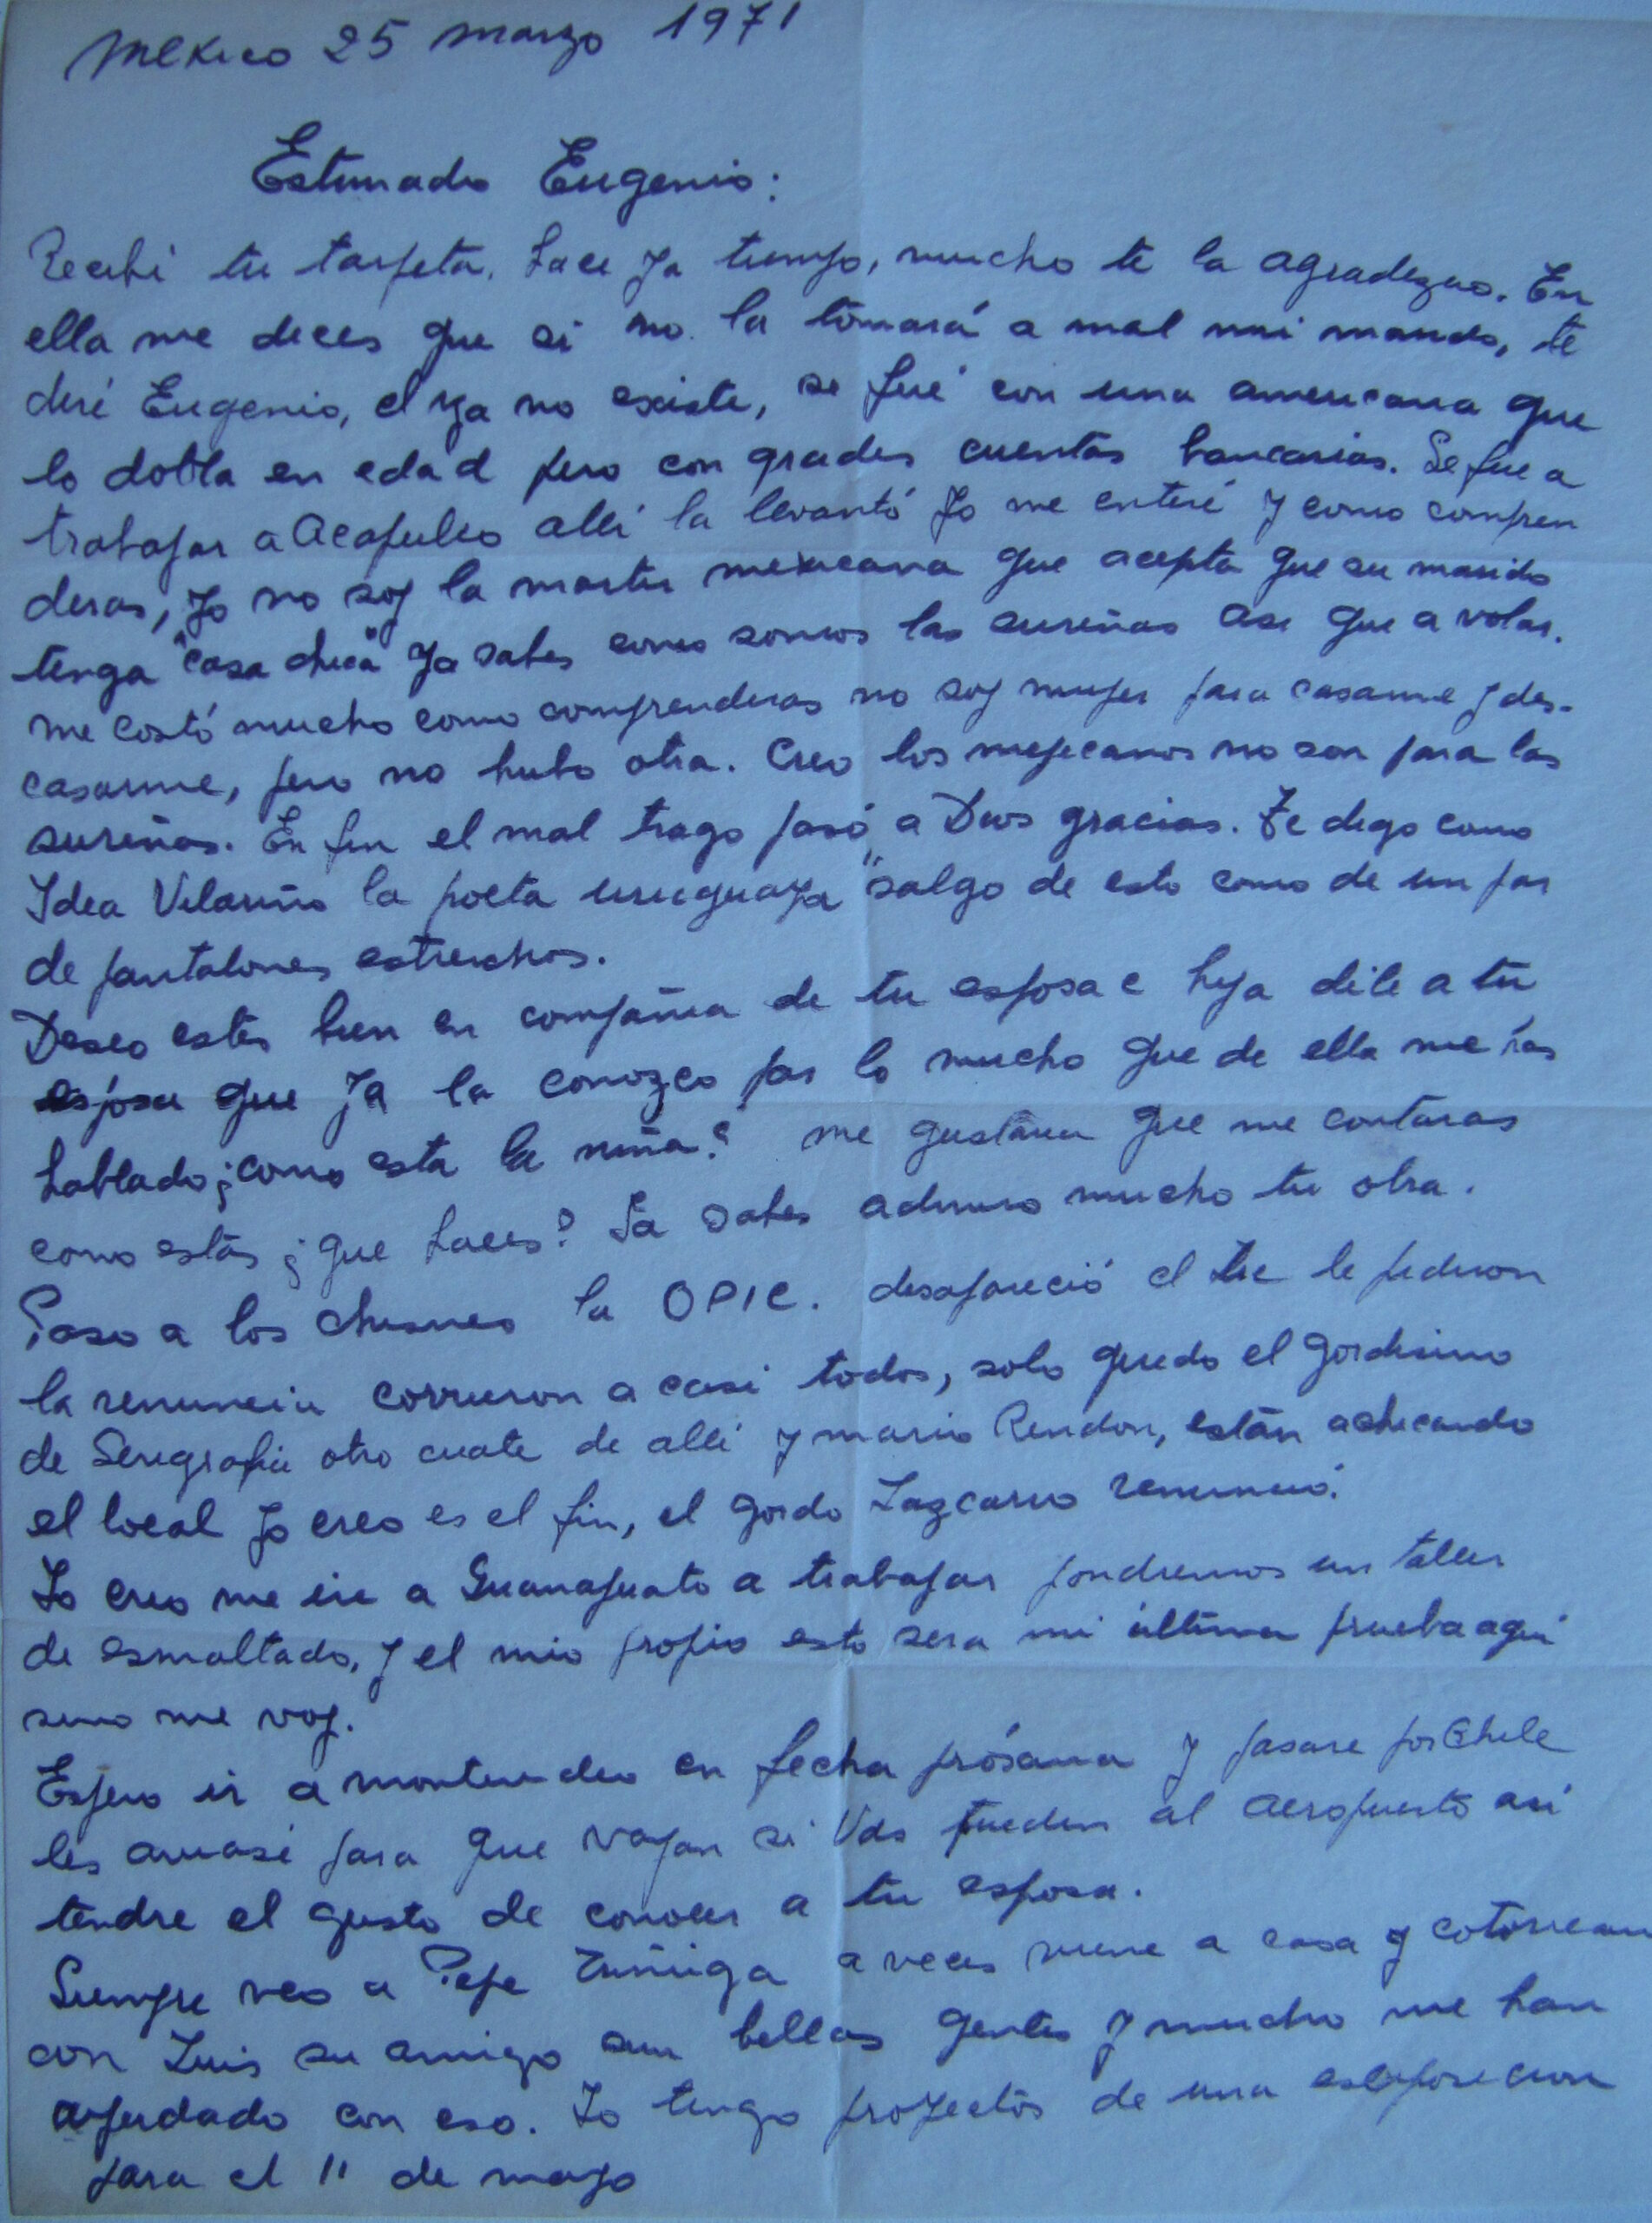 Mexico 25 marzo 1971
Estimado Eugenio:
Recibí tu tarjeta. hace ya tiempo, mucho te la agradezco. En
ella me dices que si no la tomará a mal mi marido, te
diré Eugenio, el ya no existe, se fué con una americana que
lo dobla en edad pero con grades cuentas bancarias. Se fue a
trabajar a Acapulco allí la levantó yo me enteré y como compren
deras, yo no soy la martir mexicana que acepta que su marido
tenga "casa chica" ya sabes como somos las sureñas asi que a volar.
me costó mucho como comprenderas no soy mujer para casarme y des-
casarme, pero no hubo otra. Creo los mejicanos no son para las
sureñas. En fin el mal trago pasó a Dios gracias. Te digo como
Idea Vilariño la poeta uruguaya "salgo de esto como de un par
de pantalones estrechos.
Deseo estés bien en compañia de tu esposa e hija dile a tu
esposa que ya la conozco por lo mucho que de ella me has
hablado ¿como esta la niña? me gustaria que me contaras
como estás ¿que haces? Ya sabes admiro mucho tu obra.
Paso a los chismes la OPIC. desapareció el le pidieron
la renuncia corrieron a casi todos, solo quedo el gordisimo
de Serigrafia otro cuate de allí y mario Rendon, están achicando
el local yo creo es el fin, el gordo Lazcarro renunció.
Yo creo me ire a Guanajuato a trabajar pondremos un taller
de esmaltado, y el mio propio esto sera mi última prueba aquí
sino me voy.
Espero ir a montevideo en fecha prósima y pasare por Chile
les avisaré para que vayan si Uds pueden al aeropuerto así
tendre el gusto de conocer a tu esposa.
Siempre veo a Pepe Zuñiga a veces viene a casa y cotorrean
con Luis su amigo son bellas gentes y mucho me han
ayudado con eso. Yo tengo proyectos de una esposicion
para el 11 de mayo